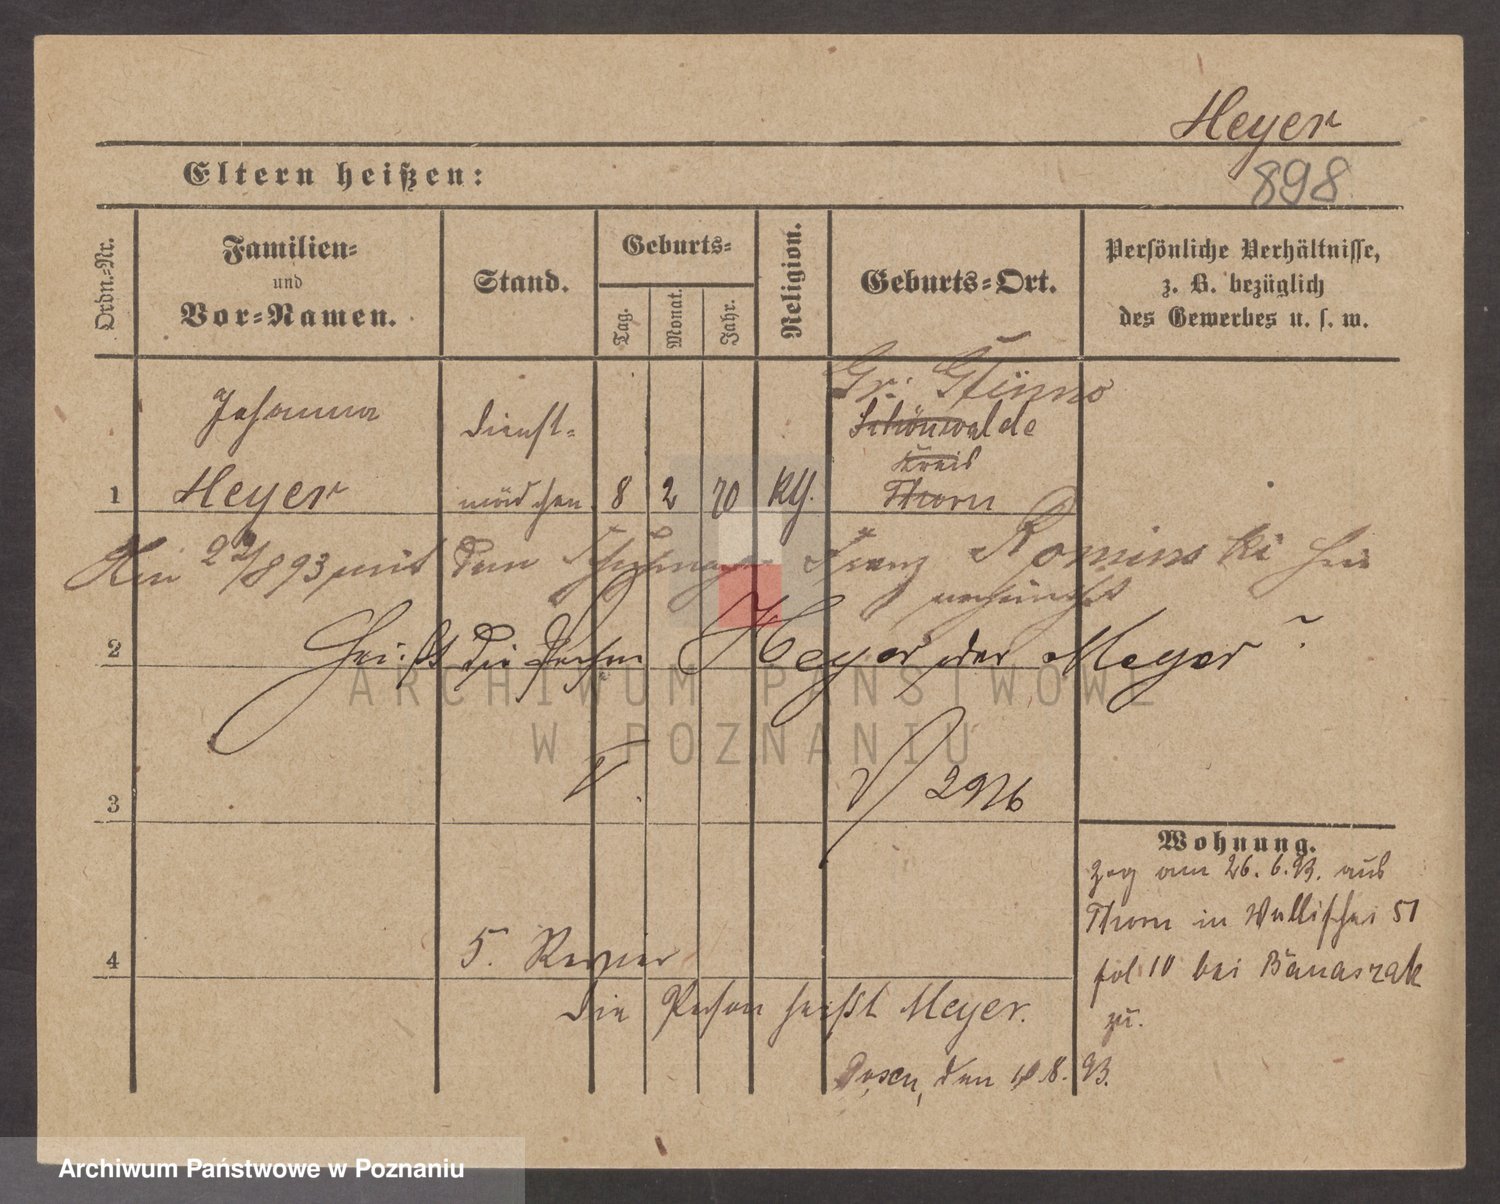 Heyer
898
Eltern heißen:
Ordn.-Nr.
Familien-
und
Vor-Namen.
Stand.
Geburts-
Tag.
Monat.
Jahr.
Religion.
Geburts-Ort.
Persönliche Verhältnisse,
z. B. bezüglich
des Gewerbes u. s. w.
Johanna
Heyer
Dienst-
mädchen
8
2
70
kth.
Gr:
Schönwalde
Kreis
Thorn
1
mit dem Schuhmacher Franz Rominski hier
2
Heißt die Person Heyer oder Meyer?
V.
3
Wohnung.
Zog am 26. 6. 93. aus
Thorn in Wallischei 51
bei Banaszak
zu.
4
5. Revier
Die Person heißt Meyer.
Posen, den 8. 93.
ARCHIWUM PAŃSTWOWE
W POZNANIU
Archiwum Państwowe w Poznaniu